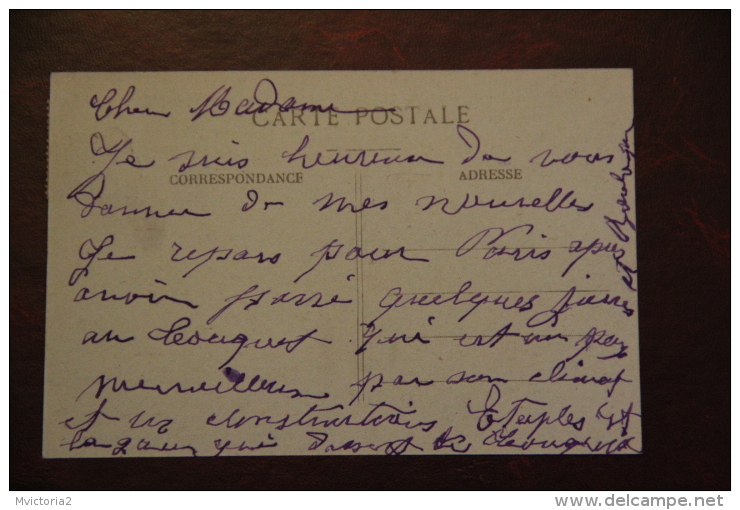 Cher Madame
CARTE POSTALE
Je suis heureux de vous
CORRESPONDANCE
ADRESSE
donner de mes nouvelles
Je repars pour Paris apres
avoir passé quelques jours
au Touquet qui est un pays
merveilleux par son climat
et ses constructions Etaples est
la gare qui dessert le Touquet
et
Mvictoria2
http://www.delcampe.net